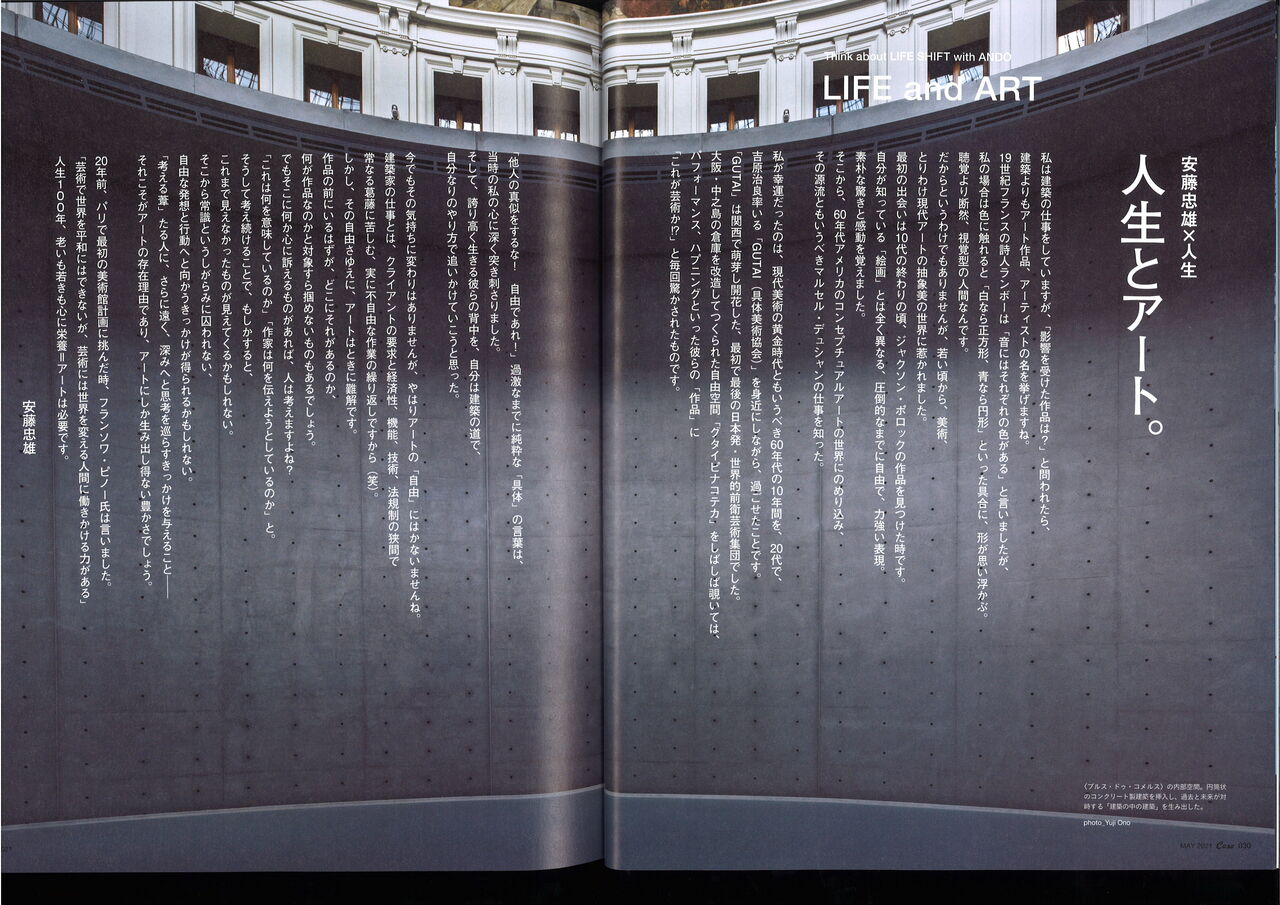 Think about LIFE SHIFT with ANDO
LIFE and ART
安藤忠雄×人生
人生とアート。
私は建築の仕事をしていますが、「影響を受けた作品は?」と問われたら、
建築よりもアート作品、アーティストの名を挙げますね。
19世紀フランスの詩人ランボーは「音にはそれぞれの色がある」と言いましたが、
私の場合は色に触れると「白なら正方形、青なら円形」といった具合に、形が思い浮かぶ。
聴覚より断然、視覚型の人間なんです。
だからというわけでもありませんが、若い頃から、美術、
とりわけ現代アートの抽象美の世界に惹かれました。
最初の出会いは10代の終わりの頃、ジャクソン・ポロックの作品を見つけた時です。
自分が知っている「絵画」とは全く異なる、圧倒的なまでに自由で、力強い表現。
素朴な驚きと感動を覚えました。
そこから、60年代アメリカのコンセプチュアルアートの世界にのめり込み、
その源流ともいうべきマルセル・デュシャンの仕事を知った。
私が幸運だったのは、現代美術の黄金時代ともいうべき60年代の10年間を、20代で、
吉原治良率いる「GUTAI(具体美術協会)」を身近にしながら、過ごせたことです。
「GUTAI」は関西で萌芽し開花した、最初で最後の日本発・世界的前衛芸術集団でした。
大阪・中之島の倉庫を改造してつくられた自由空間「グタイピナコテカ」をしばしば覗いては、
パフォーマンス、ハプニングといった彼らの「作品」に
「これが芸術か!?」と毎回驚かされたものです。
「他人の真似をするな! 自由であれ!」過激なまでに純粋な「具体」の言葉は、
当時の私の心に深く突き刺さりました。
そして、誇り高く生きる彼らの背中を、自分は建築の道で、
自分なりのやり方で追いかけていこうと思った。
今でもその気持ちに変わりはありませんが、やはりアートの「自由」にはかないませんね。
建築家の仕事とは、クライアントの要求と経済性、機能、技術、法規制の狭間で
常なる葛藤に苦しむ、実に不自由な作業の繰り返しですから(笑)。
しかし、その自由さゆえに、アートはときに難解です。
作品の前にいるはずが、どこにそれがあるのか、
何が作品なのかと対象すら掴めないものもあるでしょう。
でもそこに何か心に訴えるものがあれば、人は考えますよね?
「これは何を意味しているのか」「作家は何を伝えようとしているのか」と。
そうして考え続けることで、もしかすると、
これまで見えなかったものが見えてくるかもしれない。
そこから常識というしがらみに囚われない、
自由な発想と行動へと向かうきっかけが得られるかもしれない。
「考える葦」たる人に、さらに遠く、深みへと思考を巡らすきっかけを与えること——
それこそがアートの存在理由であり、アートにしか生み出し得ない豊かさでしょう。
20年前、パリで最初の美術館計画に挑んだ時、フランソワ・ピノー氏は言いました。
「芸術で世界を平和にはできないが、芸術には世界を変える人間に働きかける力がある」
人生100年、老いも若きも心に栄養=アートは必要です。
安藤忠雄
〈ブルス・ドゥ・コメルス〉の内部空間。円筒状
のコンクリート製建築を挿入し、過去と未来が対
峙する「建築の中の建築」を生み出した。
photo_Yuji Ono
MAY 2021 Casa 030